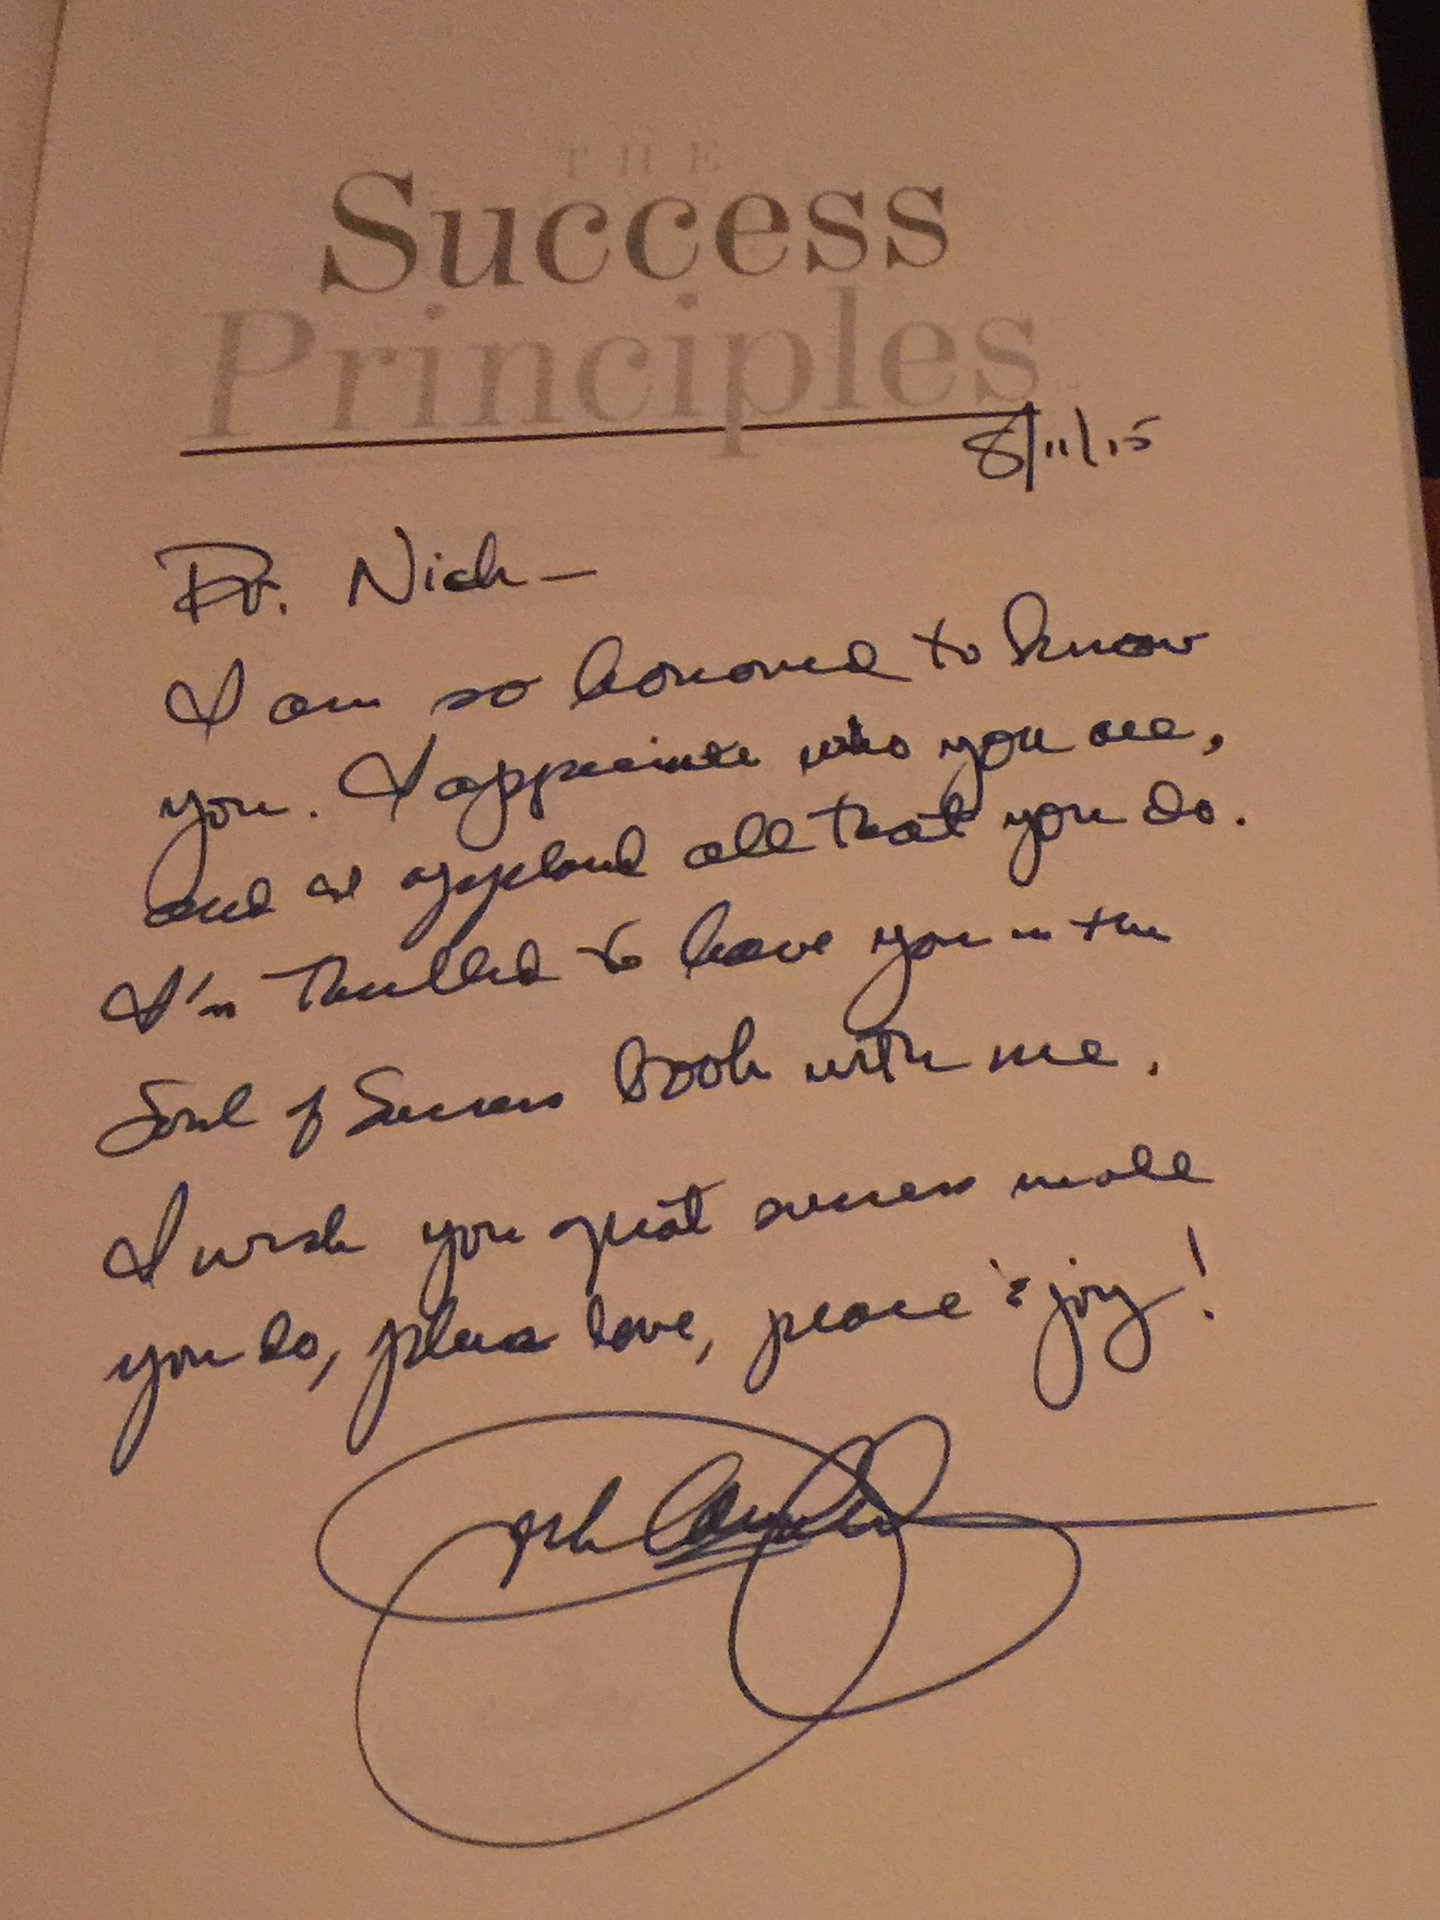 THE
Success
Principles
8/11/15
Dr. Nick —
I am so honored to know
you. I appreciate who you are,
and I applaud all that you do.
I'm thrilled to have you in the
Soul of Success book with me.
I wish you great success in all
you do, plus love, peace & joy!
Jack Canfield